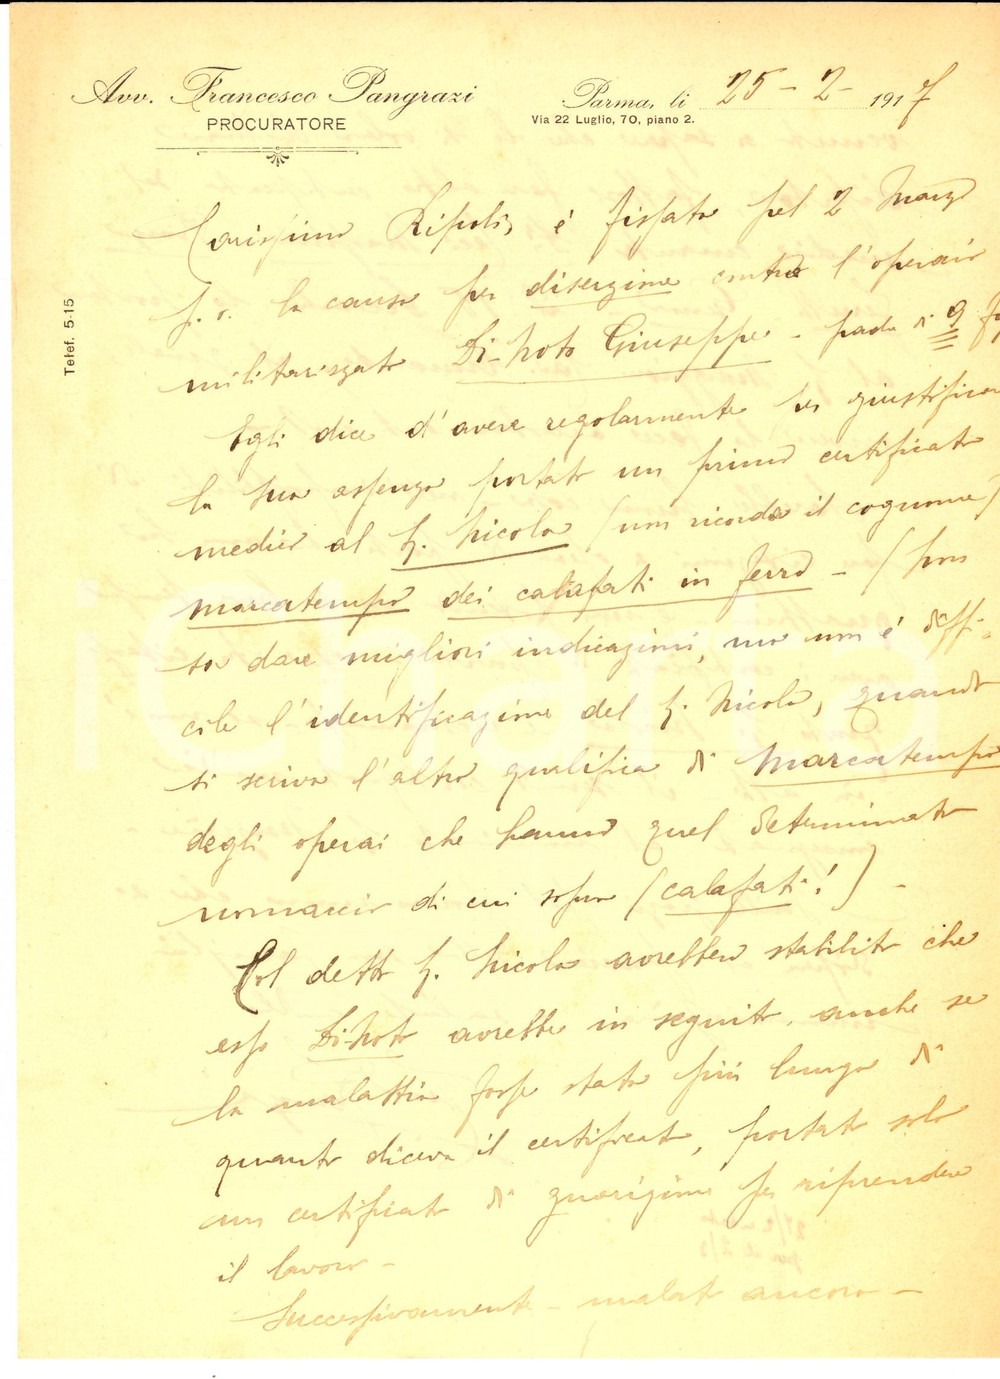 Avv. Francesco Pangrazi
PROCURATORE
Parma, li 25 - 2 - 1917
Via 22 Luglio, 70, piano 2.
Telef. 5-15
Carissimo Ripoli, è fissata pel 2 Marzo
p. v. la causa per diserzione contro l'operaio
militarizzato Di-Noto Giuseppe -
Egli dice d'avere regolarmente per giustificare
la sua assenza portato un primo certificato
medico al S. Nicola (non ricorda il cognome)
marcatempo dei calafati in ferro - (Non
sa dare migliori indicazioni, ma non è diffi-
cile l'identificazione del S. Nicola, quando
si scriva l'altra qualifica di marcatempo
degli operai che hanno quel determinato
nomaccio di cui sopra (calafati!) -
Col detto S. Nicola avrebbero stabilito che
esso Di-Noto avrebbe in seguito, anche se
la malattia fosse stata più lunga di
quanto diceva il certificato, portato solo
un certificato di guarigione per riprendere
il lavoro -
Successivamente - malato ancora -